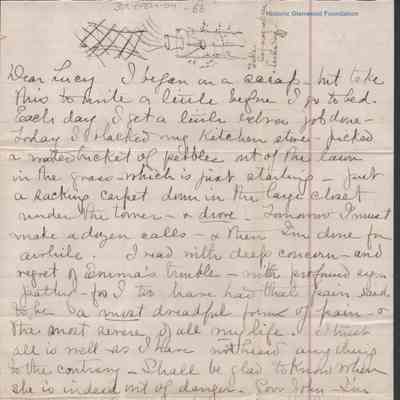 Historic Glenwood Foundation
Dear Lucy I began on a scrap - but take
this to write a little before I go to bed.
Each day I get a little extra job done -
Today I blacked my kitchen stove - picked
a waterbucket of pebbles out of the lawn
in the grass - which is just starting - put
a sacking carpet down in the large closet
under the tower - & drove - Tomorrow I must
make a dozen calls - & then I'm done for
awhile I read with deep concern - and
regret of Emma's trouble - with profound sym
pathy - for I too have had that pain said
to be a most dreadful form of pain - &
the most severe of all my life. I trust
all is well as I have not heard anything
to the contrary - Shall be glad to know when
she is indeed out of danger. Poor John - I'm